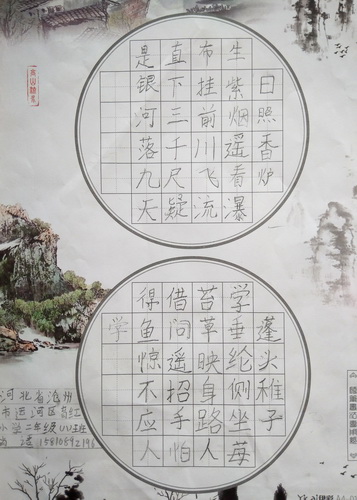 日照香炉
生紫烟遥看瀑
布挂前川飞流
直下三千尺疑
是银河落九天
蓬头稚子
学垂纶侧坐莓
苔草映身路人
借问遥招手怕
得鱼惊不应人
学
河北省沧州
市运河区
小学二年级 班